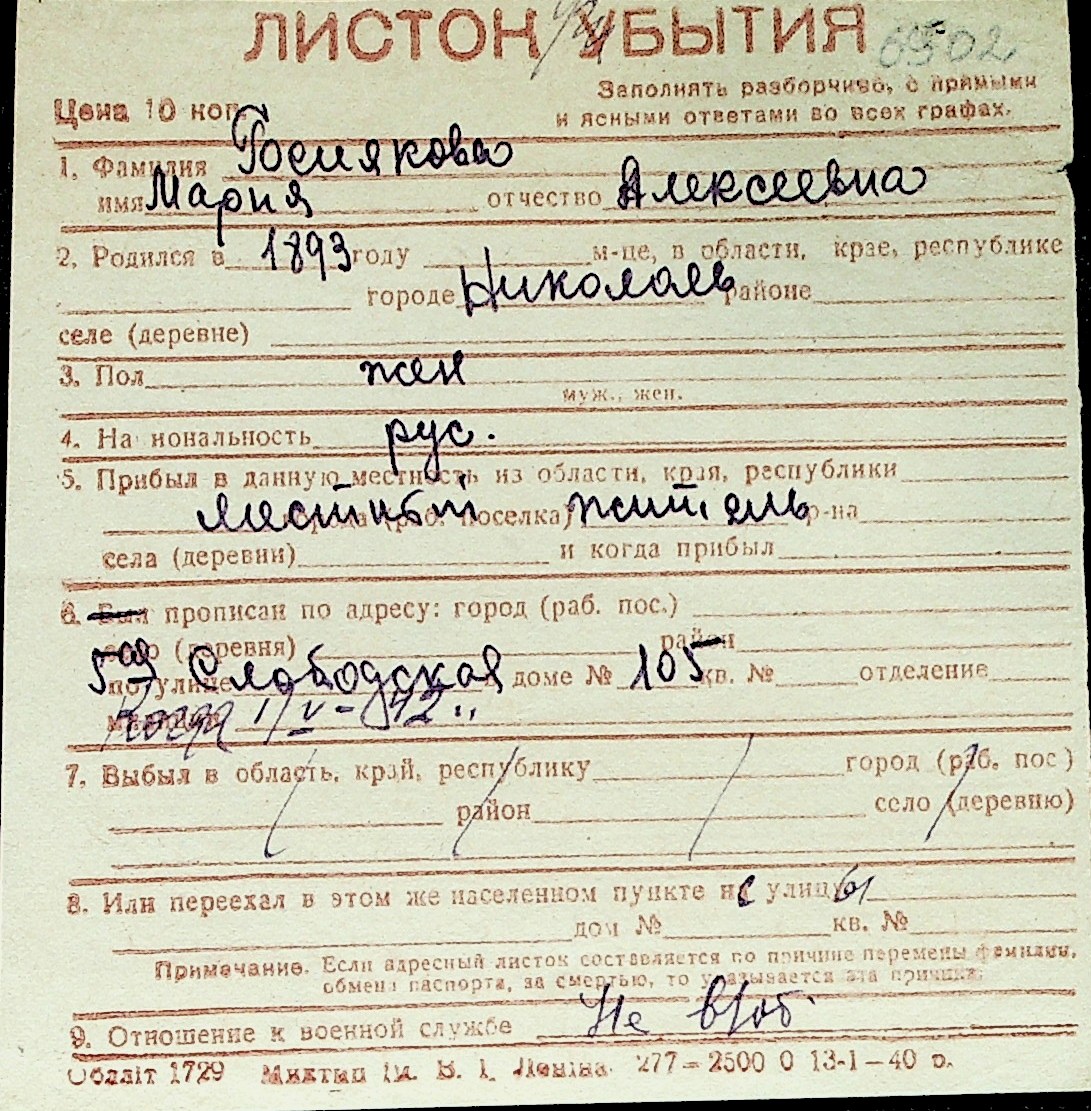 ЛИСТОК УБЫТИЯ 6502
Заполнять разборчиво, с прямыми
Цена 10 коп. и ясными ответами во всех графах.
1. Фамилия
имя Мария отчество Алексеевна
2. Родился в 1893 году м-це, в области, крае, республике
городе Николаев районе
селе (деревне)
3. Пол жен
муж., жен.
4. Национальность рус.
5. Прибыл в данную местность из области, края, республики
местный поселка) житель р-на
села (деревни) и когда прибыл
6. Был прописан по адресу: город (раб. пос.)
село (деревня) район
по улице 5ая Слободская доме № 105 кв. № отделение
1/V-42
7. Выбыл в область, край, республику город (раб. пос)
район село (деревню)
8. Или переехал в этом же населенном пункте с улицы
дом № кв. №
Примечание. Если адресный листок составляется по причине перемены фамилии,
обмена паспорта, за смертью, то указывается эта причина.
9. Отношение к военной службе Не в/об.
Обллiт 1729 Миктип iм. В. I. Ленiна. 277 — 2500 0 13-1-40 р.